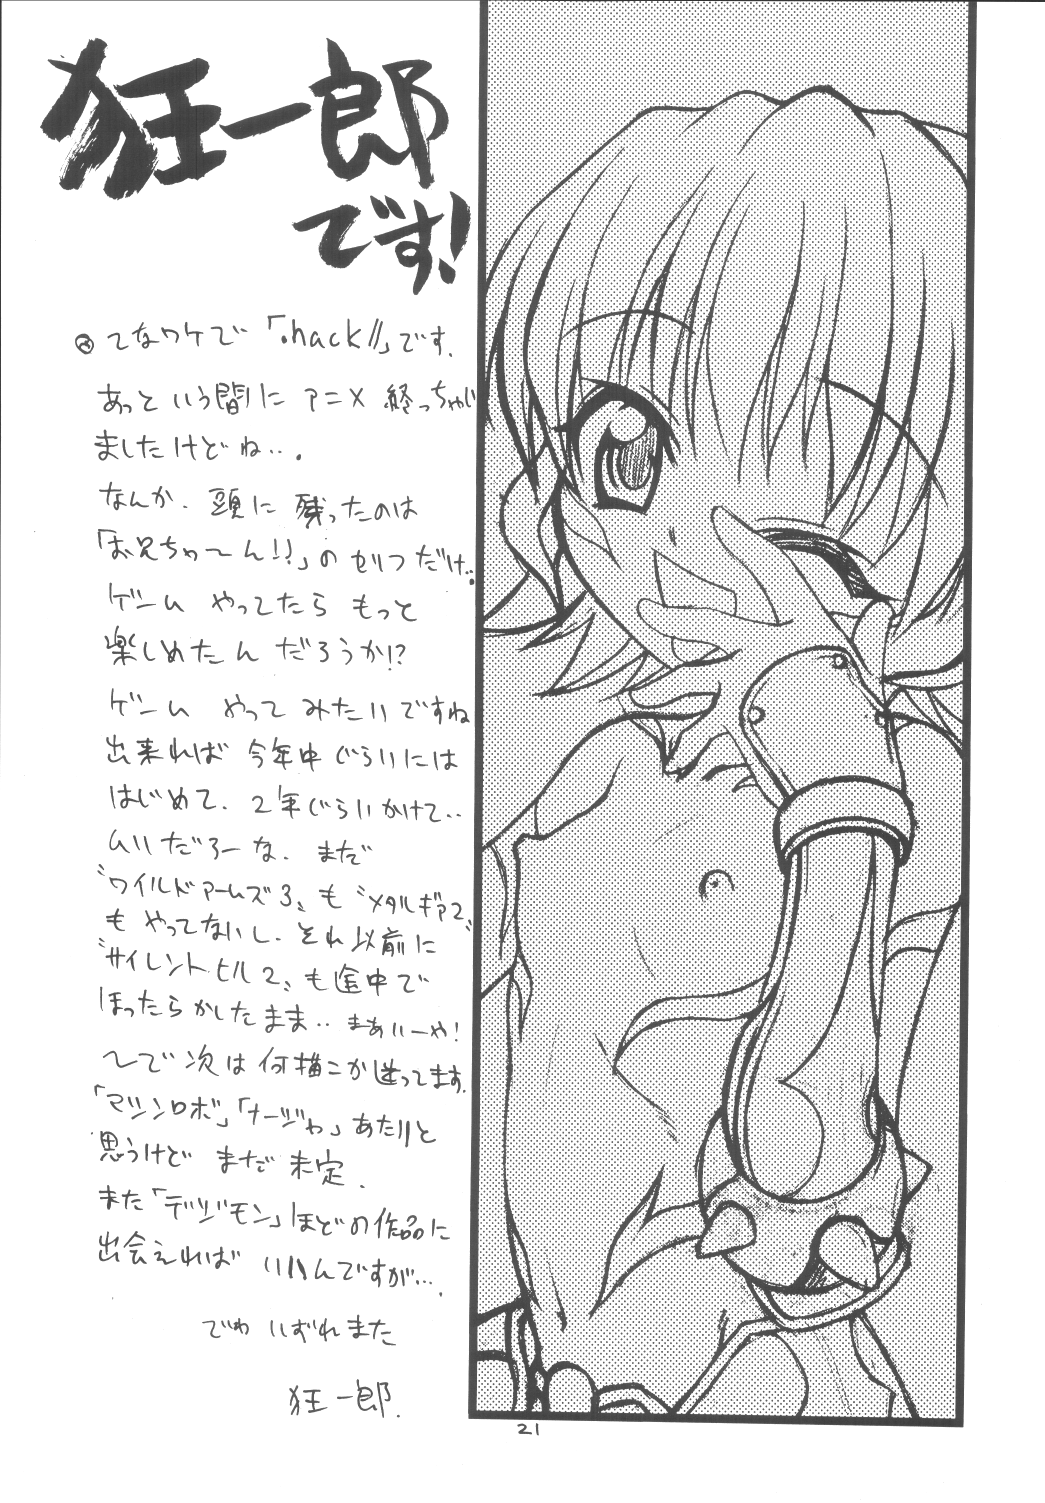 狂一郎
です!
てなワケで「.hack//」です.
あっという間に アニメ 終っちゃい
ましたけどね‥.
なんか. 頭に 残ったのは
「お兄ちゃ〜ん!?」の セリフだけ‥
ゲーム やってたら もっと
楽しめたんだろうか!?
ゲーム やって みたいですね
出来れば 今年中ぐらいには
はじめて. 2年ぐらいかけて‥
ムリだろーな. まだ
〝ワイルドアームズ3〟も〝メタルギア2〟
も やってないし. それ以前に
〝サイレントヒル2〟も途中で
ほったらかしたまま‥ まぁいーや!
〜で 次は 何描こか 迷ってます.
「マシンロボ」「ナージャ」あたりと
思うけど まだ 未定.
また「デジモン」ほどの作品に
出会えれば いいんですが….
でわ いずれまた
狂一郎.
21